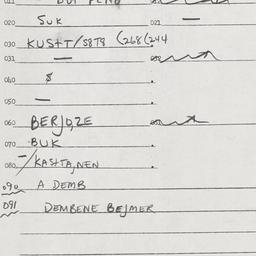 020 SUK 021 —
030 KUSTT/S8T9 (268(244
031 —
040 $
050 —
060 BERJO,ZE
070 BUK
080 KASTA,NEN
090 A DEMB
091 DEMBENE BEJMER